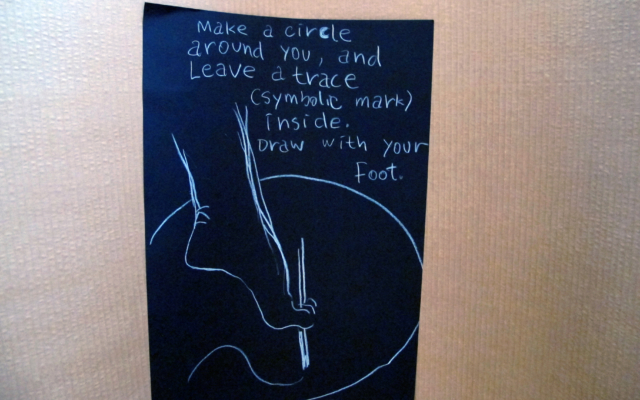 Make a circle
around you, and
Leave a trace
(symbolic mark)
inside.
Draw with your
Foot.